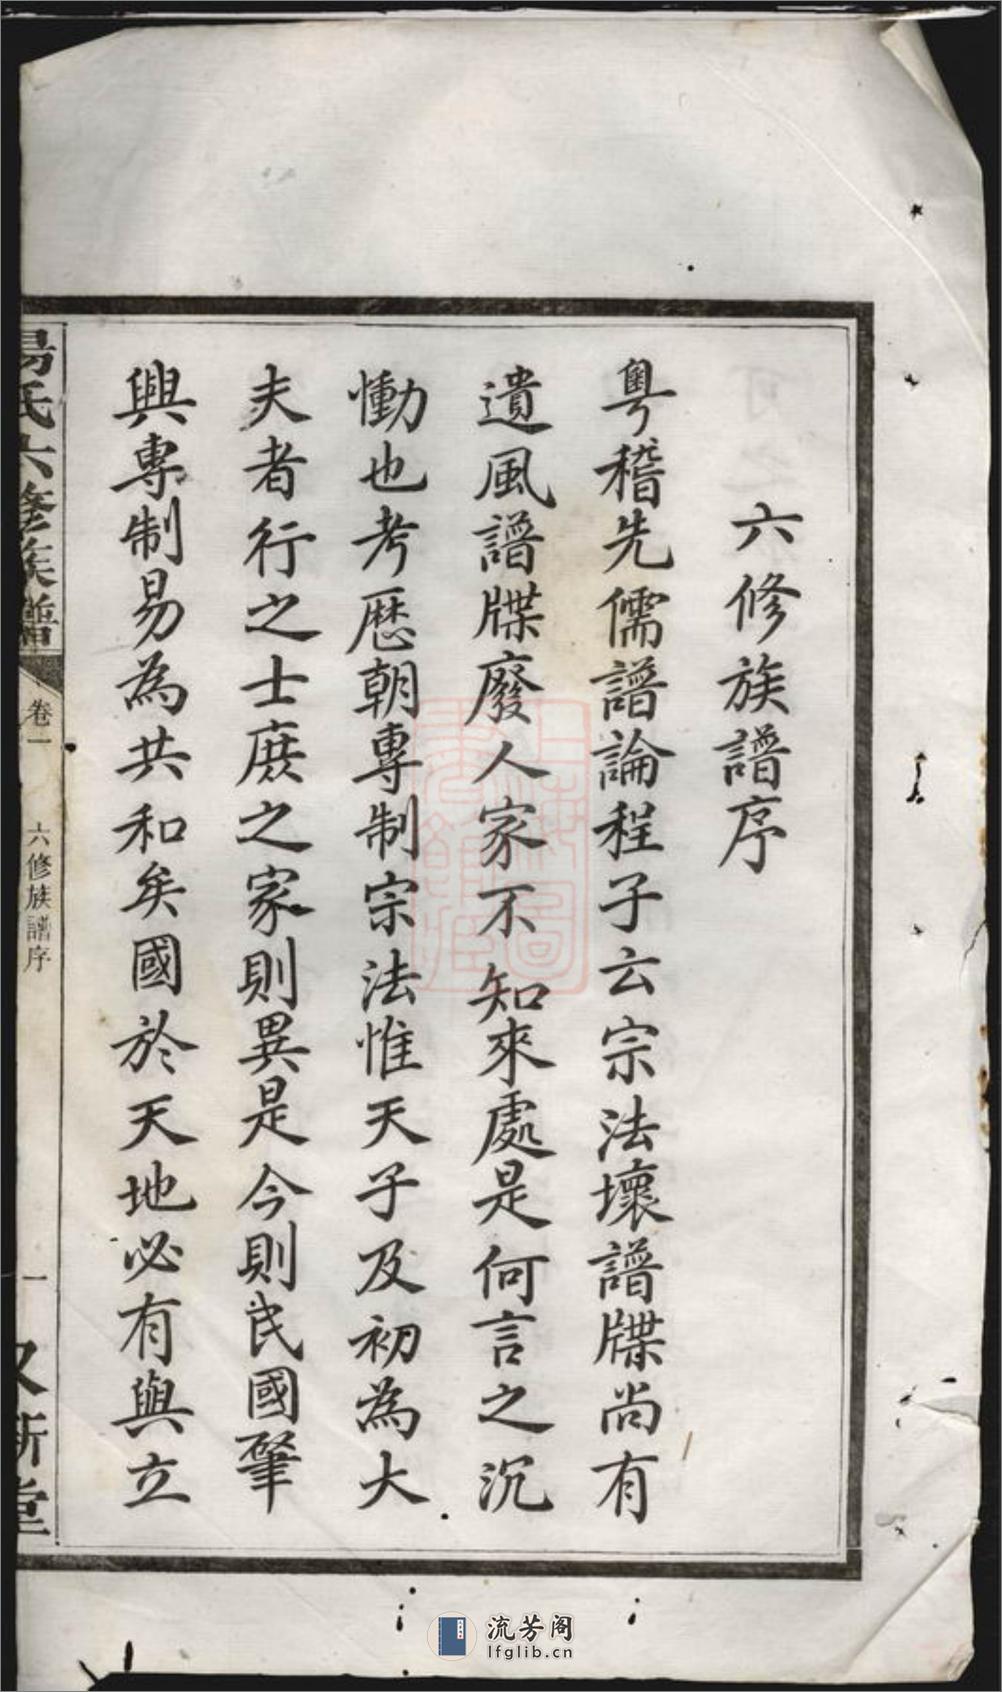 六修族譜序
粵稽先儒譜論程子云宗法壞譜牒尚有
遺風譜牒廢人家不知來處是何言之沉
慟也考歷朝專制宗法惟天子及初為大
夫者行之士庶之家則異是今則民國肇
興專制易為共和矣國於天地必有與立
氏六修族譜
卷一
六修族譜序
一
又新堂
流芳阁
lfglib.cn